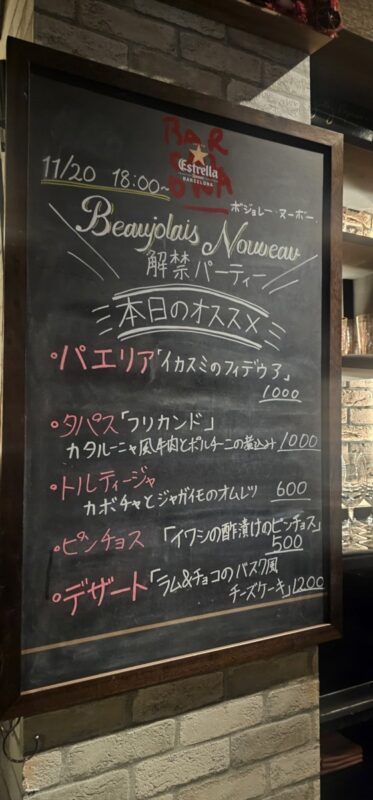 BAR
Estrella
BARCELONA
11/20 18:00~
ボジョレー・ヌーボー
Beaujolais Nouveau
解禁パーティー
本日のオススメ
・パエリア「イカスミのフィデウア」
1000
・タパス「フリカンド」
カタルーニャ風牛肉とポルチーニの煮込み 1000
・トルティージャ
カボチャとジャガイモのオムレツ 600
・ピンチョス 「イワシの酢漬けのピンチョス」
500
・デザート「ラム&チョコのバスク風
チーズケーキ」1200